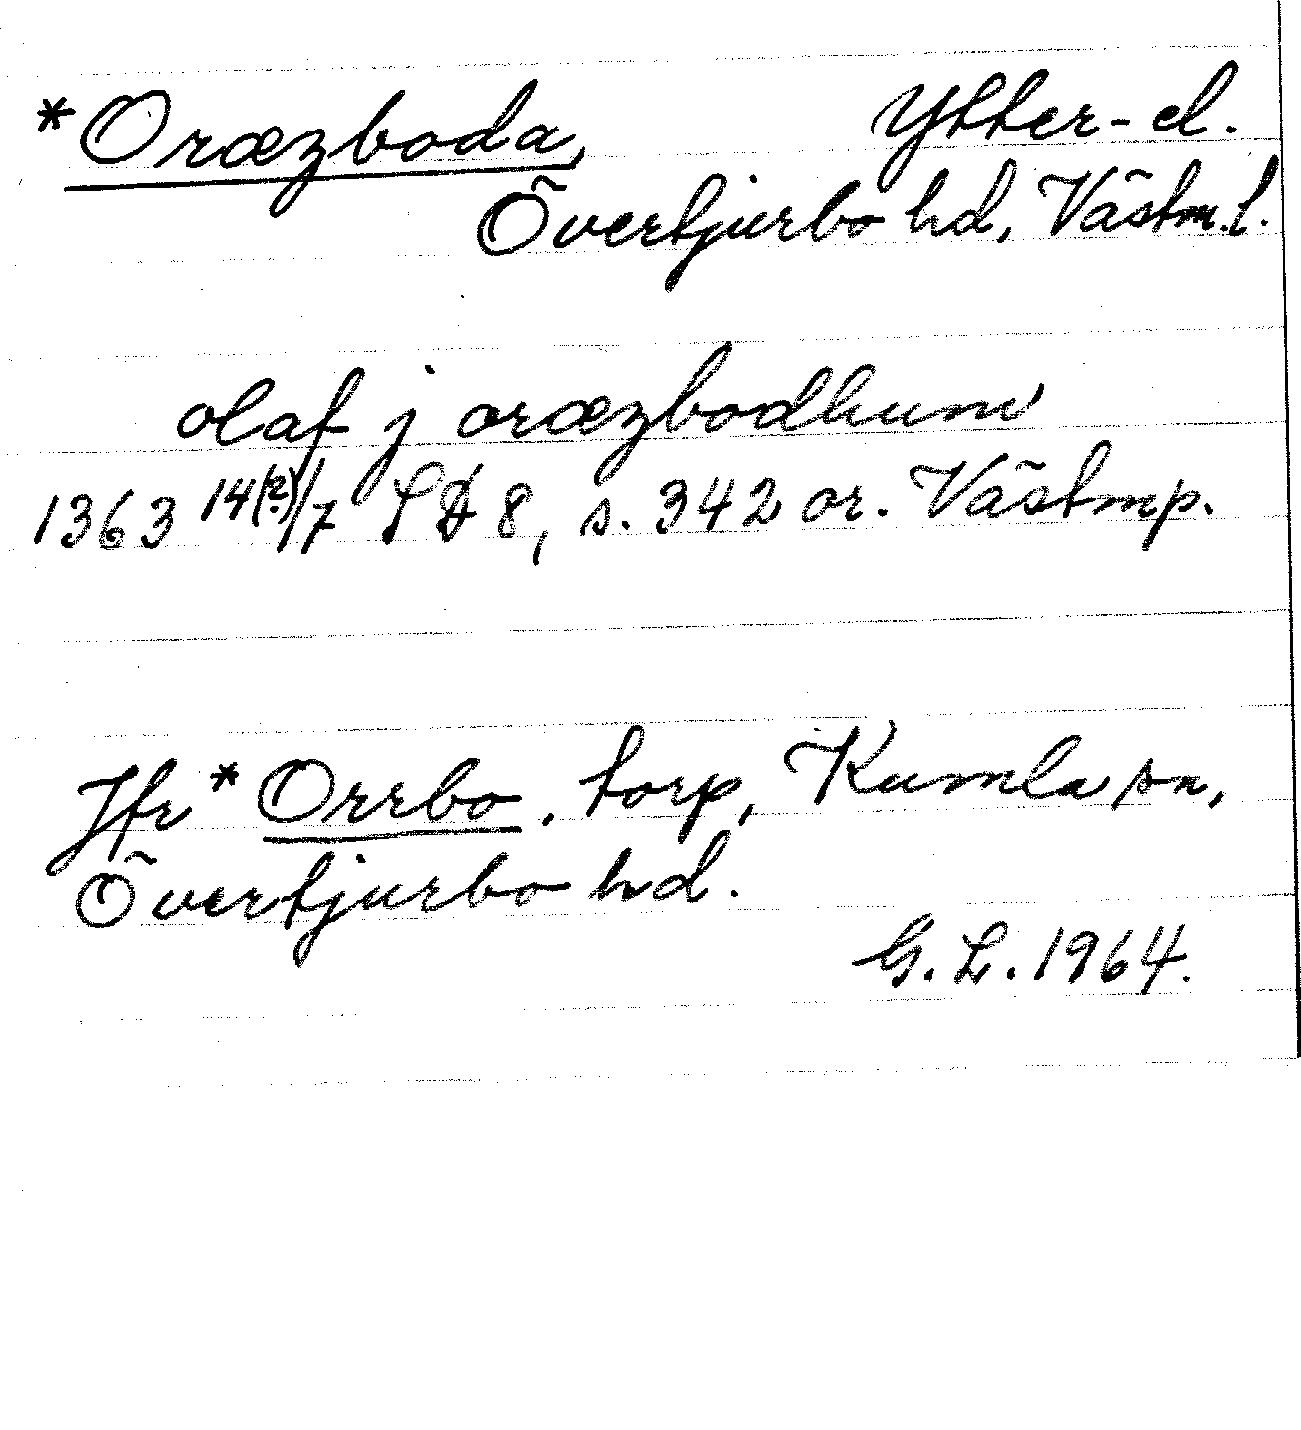 *Oræzboda, Ytter- el.
Övertjurbo hd, Västm.l.
olaf j oræzbodhum
1363 14(?)/7 SD 8, s. 342 or. Västmp.
Jfr *Orrbo, torp, Kumla sn,
Övertjurbo hd.
G. L. 1964.